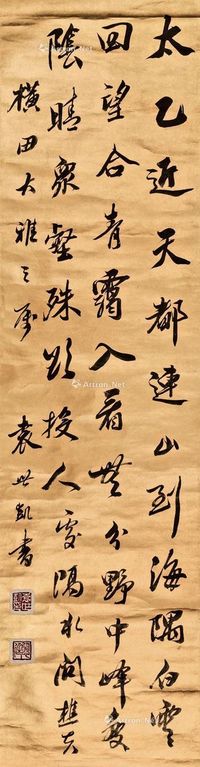 太乙近天都連山到海隅白雲
回望合青靄入看無分野中峰變
陰晴衆壑殊欲投人處隔水問樵夫
橫田大雅之屬
袁世凱書
Artron.Net
Artron.Net